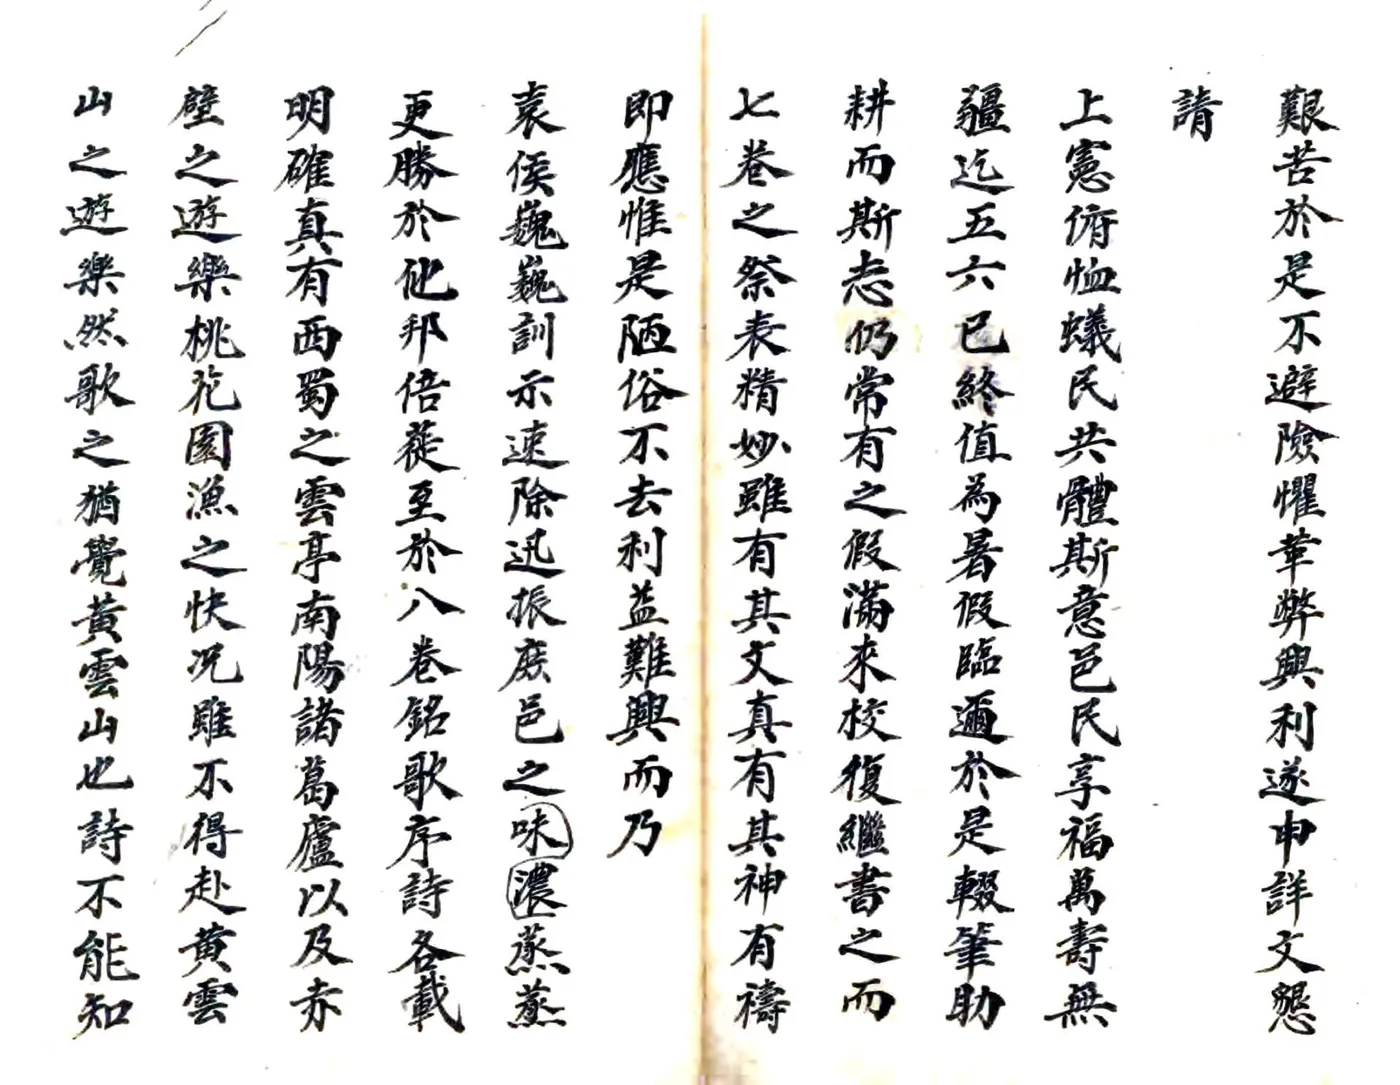 艱苦於是不避險懼革弊興利遂申詳文懇
請
上憲俯恤蟻民共體斯意邑民享福萬壽無
疆迄五六已終值為暑假臨邇於是輟筆助
耕而斯志仍常有之假滿來校復繼書之而
七卷之祭表精妙雖有其文真有其神有禱
即應惟是陋俗不去利益難興而乃
袁侯巍巍訓示速除迅振庶邑之味濃蒸蒸
更勝於他邦倍蓰至於八卷銘歌序詩各載
明確真有西蜀之雲亭南陽諸葛廬以及赤
壁之遊樂桃花園漁之快況雖不得赴黃雲
山之遊樂然歌之猶覺黃雲山也詩不能知